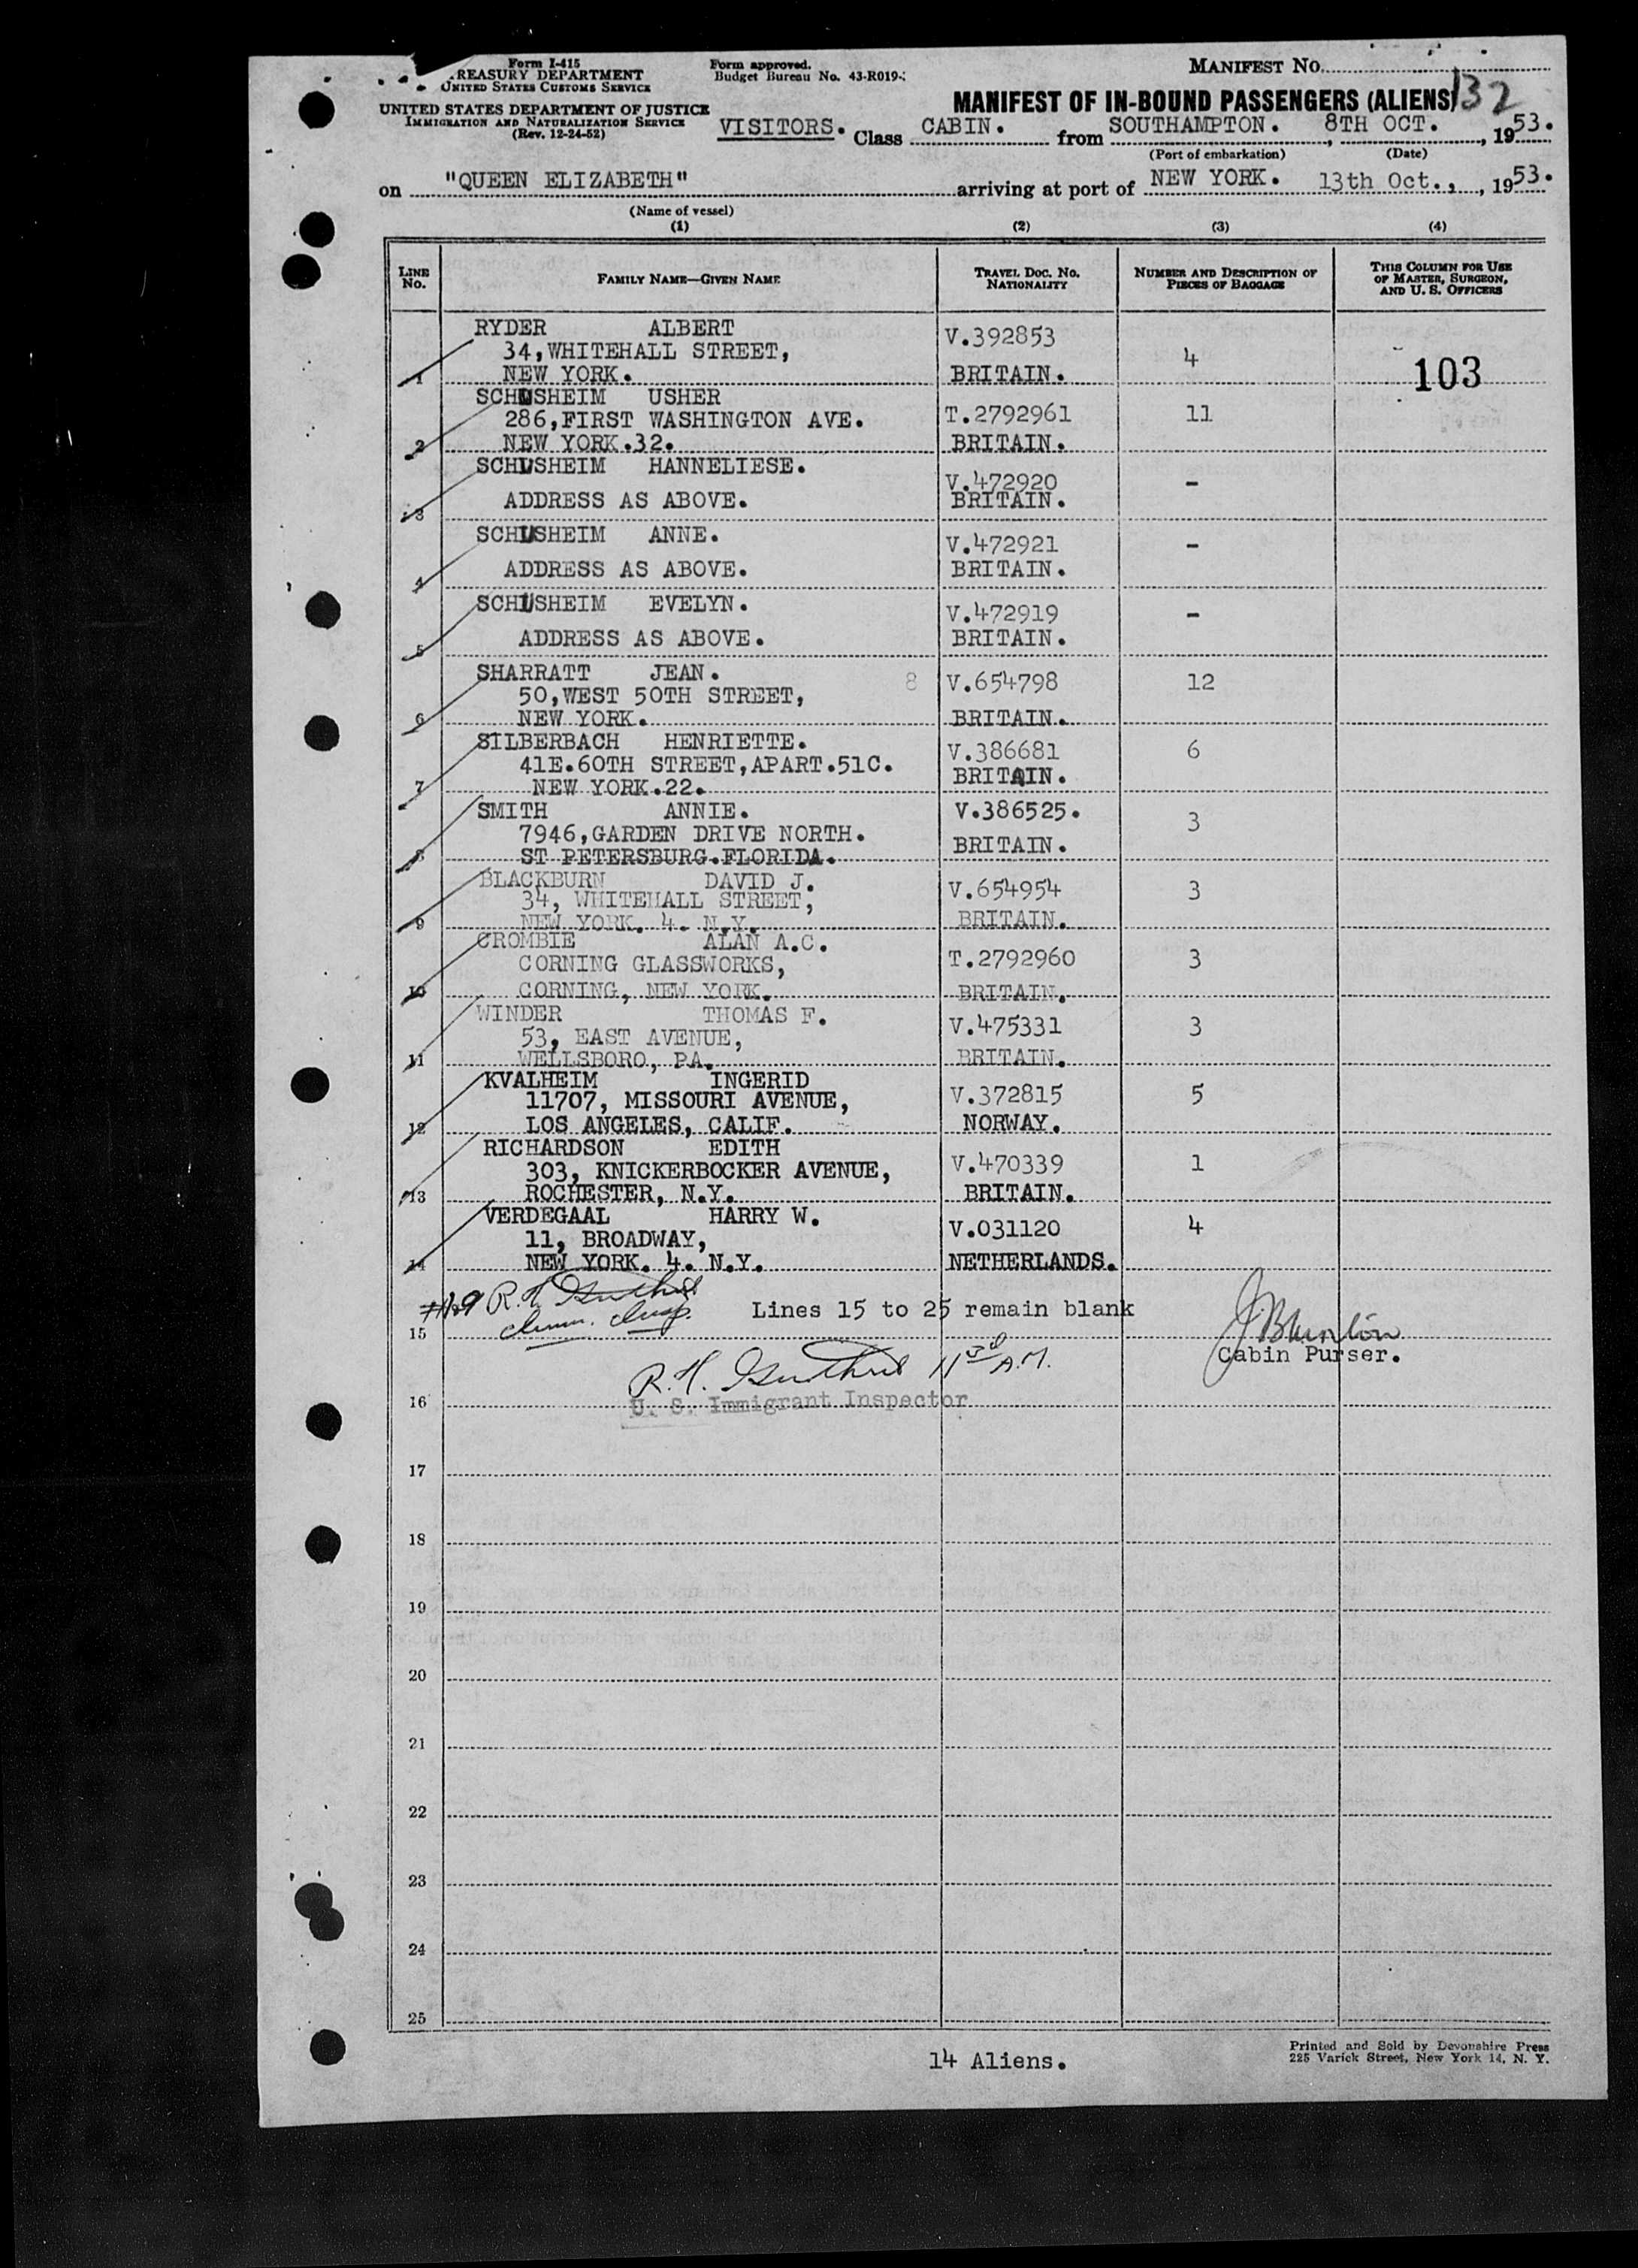 Form I-415
TREASURY DEPARTMENT
UNITED STATES CUSTOMS SERVICE
UNITED STATES DEPARTMENT OF JUSTICE
IMMIGRATION AND NATURALIZATION SERVICE
(Rev. 12-24-52)
Form approved.
Budget Bureau No. 43-R019-
MANIFEST No.
132
MANIFEST OF IN-BOUND PASSENGERS (ALIENS)
VISITORS. Class CABIN. from SOUTHAMPTON. , 8TH OCT. , 1953.
(Port of embarkation) (Date)
on "QUEEN ELIZABETH" arriving at port of NEW YORK. 13th Oct., , 1953.
(Name of vessel)
(1) (2) (3) (4)
LINE No. FAMILY NAME—GIVEN NAME TRAVEL DOC. NO. NATIONALITY NUMBER AND DESCRIPTION OF PIECES OF BAGGAGE THIS COLUMN FOR USE OF MASTER, SURGEON, AND U. S. OFFICERS
RYDER ALBERT V.392853
34,WHITEHALL STREET, 4
1 NEW YORK. BRITAIN. 103
SCHUSHEIM USHER
286,FIRST WASHINGTON AVE. T.2792961 11
2 NEW YORK.32. BRITAIN.
SCHUSHEIM HANNELIESE.
V.472920 -
3 ADDRESS AS ABOVE. BRITAIN.
SCHUSHEIM ANNE. V.472921 -
4 ADDRESS AS ABOVE. BRITAIN.
SCHUSHEIM EVELYN. V.472919 -
5 ADDRESS AS ABOVE. BRITAIN.
SHARRATT JEAN. 8 V.654798 12
50,WEST 50TH STREET,
6 NEW YORK. BRITAIN.
SILBERBACH HENRIETTE. V.386681 6
41E.60TH STREET,APART.51C. BRITAIN.
7 NEW YORK.22.
SMITH ANNIE. V.386525. 3
7946,GARDEN DRIVE NORTH. BRITAIN.
8 ST PETERSBURG.FLORIDA.
BLACKBURN DAVID J. V.654954 3
34, WHITEHALL STREET,
9 NEW YORK. 4. N.Y. BRITAIN.
CROMBIE ALAN A.C.
CORNING GLASSWORKS, T.2792960 3
10 CORNING, NEW YORK. BRITAIN.
WINDER THOMAS F. V.475331 3
53, EAST AVENUE,
11 WELLSBORO, PA. BRITAIN.
KVALHEIM INGERID
11707, MISSOURI AVENUE, V.372815 5
12 LOS ANGELES, CALIF. NORWAY.
RICHARDSON EDITH
303, KNICKERBOCKER AVENUE, V.470339 1
13 ROCHESTER, N.Y. BRITAIN.
VERDEGAAL HARRY W. V.031120 4
11, BROADWAY,
14 NEW YORK. 4. N.Y. NETHERLANDS.
R. H. Guthrie
Lines 15 to 25 remain blank
15
Cabin Purser.
R. H. Guthrie 11 30 A.M.
16 U. S. Immigrant Inspector
17
18
19
20
21
22
23
24
25
14 Aliens.
Printed and Sold by Devonshire Press
225 Varick Street, New York 14, N. Y.